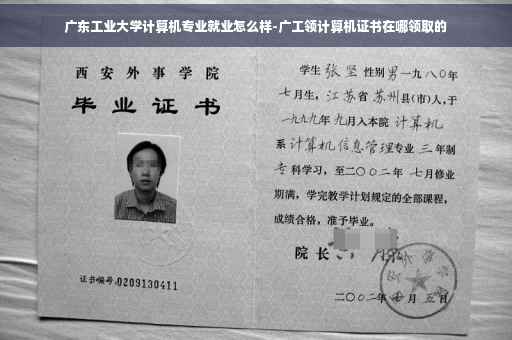 广东工业大学计算机专业就业怎么样-广工领计算机证书在哪领取的
西安外事学院
毕业证书
证书编号:0209130411
学生张坚性别男一九八〇年
七月生,江苏省苏州县(市)人,于
一九九九年九月入本院计算机
系计算机信息管理专业三年制
专科学习,至二〇〇二年七月修业
期满,学完教学计划规定的全部课程,
成绩合格,准予毕业。
院长
二〇〇二年七月五日